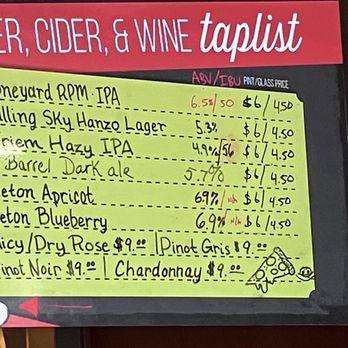 ER, CIDER, & WINE taplist
ABV/IBU PINT/GLASS PRICE
oneyard RPM IPA 6.5%/50 $6/450
lling Sky Hanzo Lager 5.3% $6/4.50
riem Hazy IPA 4.9%/56 $6/4.50
Barrel Dark ale 5.7% $6/4.50
leton Apricot 6.9%/n/a $6/4.50
leton Blueberry 6.9% n/a $6/4.50
icy/Dry Rose $9.00 | Pinot Gris $9.00
inot Noir $9.00 | Chardonnay $9.00